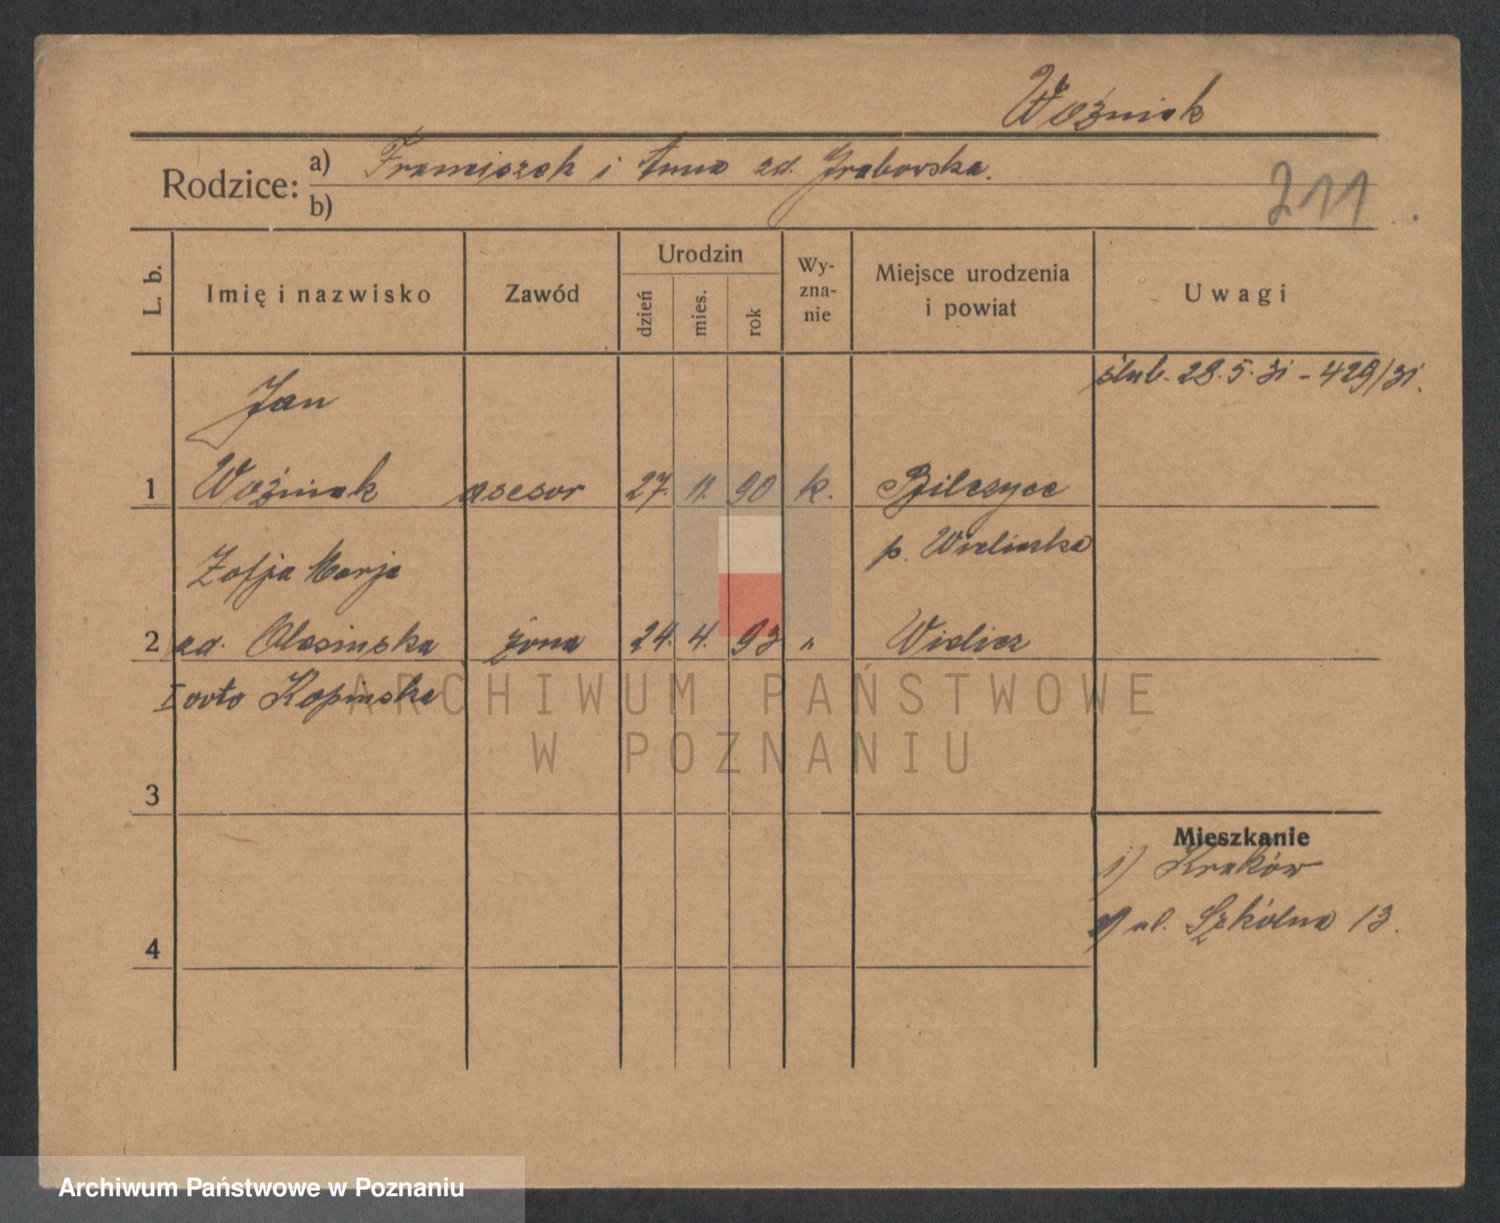 Woźniak
Rodzice: a) Franciszek i Anna zd. Grabowska.
b)
211
L. b.
Imię i nazwisko
Zawód
Urodzin
dzień
mies.
rok
Wy-
zna-
nie
Miejsce urodzenia
i powiat
Uwagi
ślub. 28.5.31 - 429/31.
Jan
1 Woźniak asesor 27. 11. 90 k. Bilczyce
p. Wieliczka
Zofja Marja
2 zd. Olesinska żona 24. 4. 93 " Wielicz
I voto Kopinska
ARCHIWUM PAŃSTWOWE
W POZNANIU
3
Mieszkanie
1) Kraków
ul. Szkólna 13.
4
Archiwum Państwowe w Poznaniu